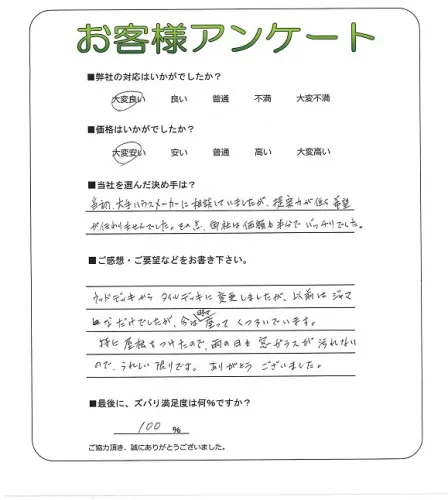 お客様アンケート
■弊社の対応はいかがでしたか？
大変良い 良い 普通 不満 大変不満
■価格はいかがでしたか？
大変安い 安い 普通 高い 大変高い
■当社を選んだ決め手は？
当初、大手ハウスメーカーに相談していましたが、提案力が低く希望
が伝わりませんでした。その点、御社は価格も半分でバッチリでした。
■ご感想・ご要望などをお書き下さい。
ウッドデッキから タイルデッキに変更しましたが、以前はジャマ
なだけでしたが、今は 座って くつろいでいます。
特に 屋根もつけたので、雨の日も 窓ガラスが汚れない
ので、うれしい限りです。ありがとうございました。
■最後に、ズバリ満足度は何％ですか？
100 %
ご協力頂き、誠にありがとうございました。